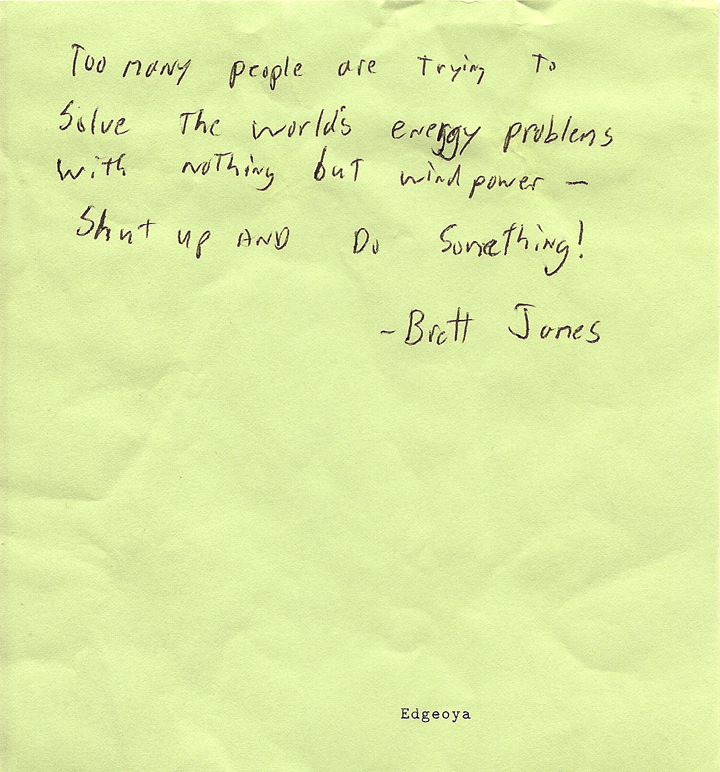 Too many people are trying to
Solve the world's energy problems
with nothing but wind power –
Shut up AND Do Something!
-Brett Jones
Edgeoya